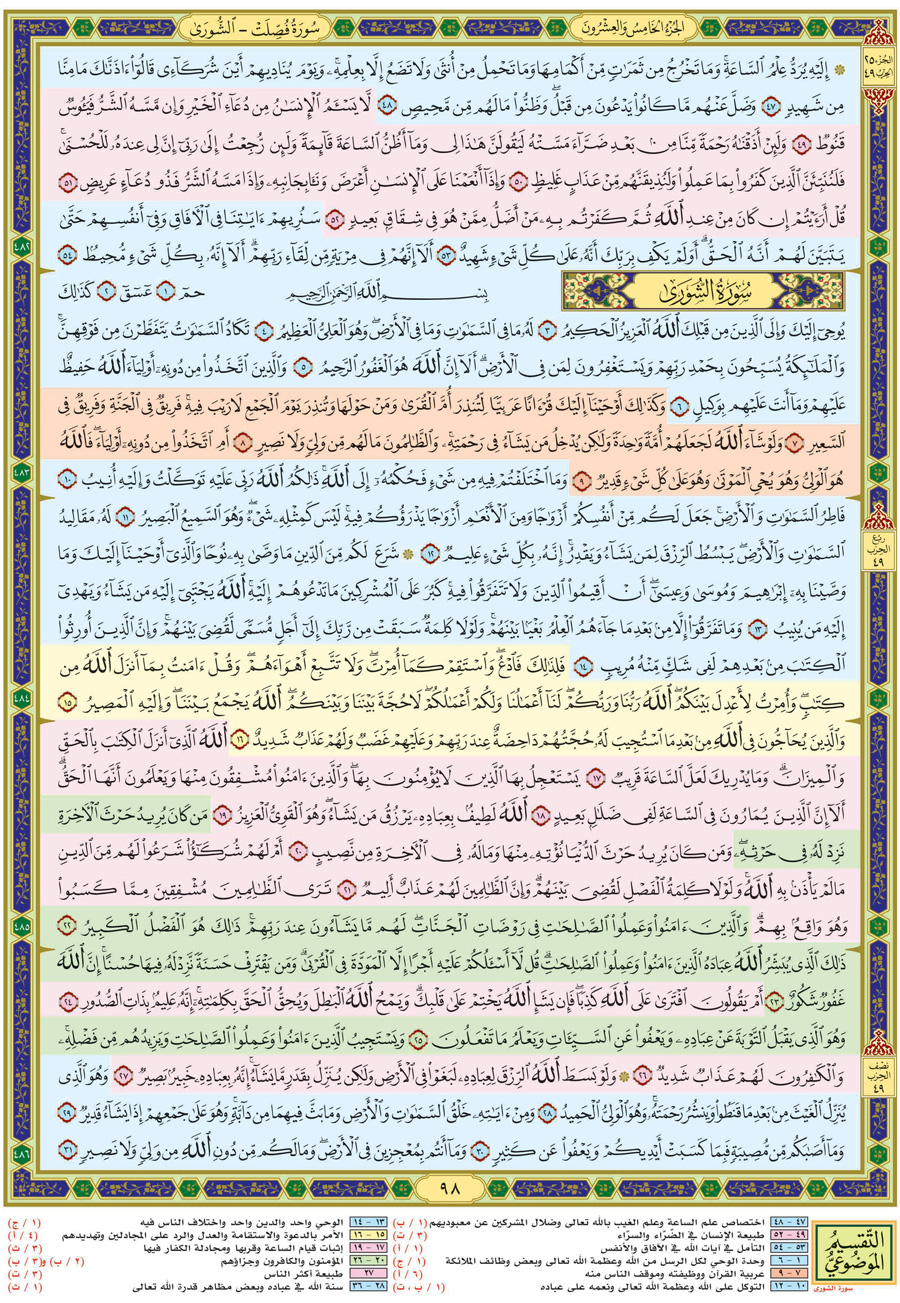 سُورَةُ فُصِّلَتْ - الشُّورَى
الجُزْءُ الخَامِسُ وَالعِشْرُونَ
الجُزء ٢٥
الحِزب ٤٩
۞ إِلَيْهِ يُرَدُّ عِلْمُ السَّاعَةِ وَمَا تَخْرُجُ مِن ثَمَرَاتٍ مِّنْ أَكْمَامِهَا وَمَا تَحْمِلُ مِنْ أُنثَىٰ وَلَا تَضَعُ إِلَّا بِعِلْمِهِۦ وَيَوْمَ يُنَادِيهِمْ أَيْنَ شُرَكَآءِى قَالُوٓا۟ ءَاذَنَّـٰكَ مَا مِنَّا
مِن شَهِيدٍ ٤٧ وَضَلَّ عَنْهُم مَّا كَانُوا۟ يَدْعُونَ مِن قَبْلُ وَظَنُّوا۟ مَا لَهُم مِّن مَّحِيصٍ ٤٨ لَّا يَسْـَٔمُ الْإِنسَـٰنُ مِن دُعَآءِ الْخَيْرِ وَإِن مَّسَّهُ الشَّرُّ فَيَـُٔوسٌ
قَنُوطٌ ٤٩ وَلَئِنْ أَذَقْنَـٰهُ رَحْمَةً مِّنَّا مِنۢ بَعْدِ ضَرَّآءَ مَسَّتْهُ لَيَقُولَنَّ هَـٰذَا لِى وَمَآ أَظُنُّ السَّاعَةَ قَآئِمَةً وَلَئِن رُّجِعْتُ إِلَىٰ رَبِّىٓ إِنَّ لِى عِندَهُۥ لَلْحُسْنَىٰ
فَلَنُنَبِّئَنَّ الَّذِينَ كَفَرُوا۟ بِمَا عَمِلُوا۟ وَلَنُذِيقَنَّهُم مِّنْ عَذَابٍ غَلِيظٍ ٥٠ وَإِذَآ أَنْعَمْنَا عَلَى الْإِنسَـٰنِ أَعْرَضَ وَنَـَٔا بِجَانِبِهِۦ وَإِذَا مَسَّهُ الشَّرُّ فَذُو دُعَآءٍ عَرِيضٍ ٥١
قُلْ أَرَءَيْتُمْ إِن كَانَ مِنْ عِندِ اللَّهِ ثُمَّ كَفَرْتُم بِهِۦ مَنْ أَضَلُّ مِمَّنْ هُوَ فِى شِقَاقٍۭ بَعِيدٍ ٥٢ سَنُرِيهِمْ ءَايَـٰتِنَا فِى الْـَٔافَاقِ وَفِىٓ أَنفُسِهِمْ حَتَّىٰ
يَتَبَيَّنَ لَهُمْ أَنَّهُ الْحَقُّ أَوَلَمْ يَكْفِ بِرَبِّكَ أَنَّهُۥ عَلَىٰ كُلِّ شَىْءٍ شَهِيدٌ ٥٣ أَلَآ إِنَّهُمْ فِى مِرْيَةٍ مِّن لِّقَآءِ رَبِّهِمْ أَلَآ إِنَّهُۥ بِكُلِّ شَىْءٍ مُّحِيطٌۢ ٥٤
٤٨٢
سُورَةُ الشُّورَىٰ
بِسْمِ اللَّهِ الرَّحْمَـٰنِ الرَّحِيمِ
حمٓ ١ عٓسٓقٓ ٢ كَذَٰلِكَ
يُوحِىٓ إِلَيْكَ وَإِلَى الَّذِينَ مِن قَبْلِكَ اللَّهُ الْعَزِيزُ الْحَكِيمُ ٣ لَهُۥ مَا فِى السَّمَـٰوَٰتِ وَمَا فِى الْأَرْضِ وَهُوَ الْعَلِىُّ الْعَظِيمُ ٤ تَكَادُ السَّمَـٰوَٰتُ يَتَفَطَّرْنَ مِن فَوْقِهِنَّ
وَالْمَلَـٰٓئِكَةُ يُسَبِّحُونَ بِحَمْدِ رَبِّهِمْ وَيَسْتَغْفِرُونَ لِمَن فِى الْأَرْضِ أَلَآ إِنَّ اللَّهَ هُوَ الْغَفُورُ الرَّحِيمُ ٥ وَالَّذِينَ اتَّخَذُوا۟ مِن دُونِهِۦٓ أَوْلِيَآءَ اللَّهُ حَفِيظٌ
عَلَيْهِمْ وَمَآ أَنتَ عَلَيْهِم بِوَكِيلٍ ٦ وَكَذَٰلِكَ أَوْحَيْنَآ إِلَيْكَ قُرْءَانًا عَرَبِيًّا لِّتُنذِرَ أُمَّ الْقُرَىٰ وَمَنْ حَوْلَهَا وَتُنذِرَ يَوْمَ الْجَمْعِ لَا رَيْبَ فِيهِ فَرِيقٌ فِى الْجَنَّةِ وَفَرِيقٌ فِى
السَّعِيرِ ٧ وَلَوْ شَآءَ اللَّهُ لَجَعَلَهُمْ أُمَّةً وَٰحِدَةً وَلَـٰكِن يُدْخِلُ مَن يَشَآءُ فِى رَحْمَتِهِۦ وَالظَّـٰلِمُونَ مَا لَهُم مِّن وَلِىٍّ وَلَا نَصِيرٍ ٨ أَمِ اتَّخَذُوا۟ مِن دُونِهِۦٓ أَوْلِيَآءَ فَاللَّهُ
هُوَ الْوَلِىُّ وَهُوَ يُحْىِ الْمَوْتَىٰ وَهُوَ عَلَىٰ كُلِّ شَىْءٍ قَدِيرٌ ٩ وَمَا اخْتَلَفْتُمْ فِيهِ مِن شَىْءٍ فَحُكْمُهُۥٓ إِلَى اللَّهِ ذَٰلِكُمُ اللَّهُ رَبِّى عَلَيْهِ تَوَكَّلْتُ وَإِلَيْهِ أُنِيبُ ١٠
٤٨٣
فَاطِرُ السَّمَـٰوَٰتِ وَالْأَرْضِ جَعَلَ لَكُم مِّنْ أَنفُسِكُمْ أَزْوَٰجًا وَمِنَ الْأَنْعَـٰمِ أَزْوَٰجًا يَذْرَؤُكُمْ فِيهِ لَيْسَ كَمِثْلِهِۦ شَىْءٌ وَهُوَ السَّمِيعُ الْبَصِيرُ ١١ لَهُۥ مَقَالِيدُ
السَّمَـٰوَٰتِ وَالْأَرْضِ يَبْسُطُ الرِّزْقَ لِمَن يَشَآءُ وَيَقْدِرُ إِنَّهُۥ بِكُلِّ شَىْءٍ عَلِيمٌ ١٢ ۞ شَرَعَ لَكُم مِّنَ الدِّينِ مَا وَصَّىٰ بِهِۦ نُوحًا وَالَّذِىٓ أَوْحَيْنَآ إِلَيْكَ وَمَا
رُبع
الحِزب
٤٩
وَصَّيْنَا بِهِۦٓ إِبْرَٰهِيمَ وَمُوسَىٰ وَعِيسَىٰٓ أَنْ أَقِيمُوا۟ الدِّينَ وَلَا تَتَفَرَّقُوا۟ فِيهِ كَبُرَ عَلَى الْمُشْرِكِينَ مَا تَدْعُوهُمْ إِلَيْهِ اللَّهُ يَجْتَبِىٓ إِلَيْهِ مَن يَشَآءُ وَيَهْدِىٓ
إِلَيْهِ مَن يُنِيبُ ١٣ وَمَا تَفَرَّقُوٓا۟ إِلَّا مِنۢ بَعْدِ مَا جَآءَهُمُ الْعِلْمُ بَغْيًۢا بَيْنَهُمْ وَلَوْلَا كَلِمَةٌ سَبَقَتْ مِن رَّبِّكَ إِلَىٰٓ أَجَلٍ مُّسَمًّى لَّقُضِىَ بَيْنَهُمْ وَإِنَّ الَّذِينَ أُورِثُوا۟
الْكِتَـٰبَ مِنۢ بَعْدِهِمْ لَفِى شَكٍّ مِّنْهُ مُرِيبٍ ١٤ فَلِذَٰلِكَ فَادْعُ وَاسْتَقِمْ كَمَآ أُمِرْتَ وَلَا تَتَّبِعْ أَهْوَآءَهُمْ وَقُلْ ءَامَنتُ بِمَآ أَنزَلَ اللَّهُ مِن
كِتَـٰبٍ وَأُمِرْتُ لِأَعْدِلَ بَيْنَكُمُ اللَّهُ رَبُّنَا وَرَبُّكُمْ لَنَآ أَعْمَـٰلُنَا وَلَكُمْ أَعْمَـٰلُكُمْ لَا حُجَّةَ بَيْنَنَا وَبَيْنَكُمُ اللَّهُ يَجْمَعُ بَيْنَنَا وَإِلَيْهِ الْمَصِيرُ ١٥
٤٨٤
وَالَّذِينَ يُحَآجُّونَ فِى اللَّهِ مِنۢ بَعْدِ مَا اسْتُجِيبَ لَهُۥ حُجَّتُهُمْ دَاحِضَةٌ عِندَ رَبِّهِمْ وَعَلَيْهِمْ غَضَبٌ وَلَهُمْ عَذَابٌ شَدِيدٌ ١٦ اللَّهُ الَّذِىٓ أَنزَلَ الْكِتَـٰبَ بِالْحَقِّ
وَالْمِيزَانَ وَمَا يُدْرِيكَ لَعَلَّ السَّاعَةَ قَرِيبٌ ١٧ يَسْتَعْجِلُ بِهَا الَّذِينَ لَا يُؤْمِنُونَ بِهَا وَالَّذِينَ ءَامَنُوا۟ مُشْفِقُونَ مِنْهَا وَيَعْلَمُونَ أَنَّهَا الْحَقُّ
أَلَآ إِنَّ الَّذِينَ يُمَارُونَ فِى السَّاعَةِ لَفِى ضَلَـٰلٍۭ بَعِيدٍ ١٨ اللَّهُ لَطِيفٌۢ بِعِبَادِهِۦ يَرْزُقُ مَن يَشَآءُ وَهُوَ الْقَوِىُّ الْعَزِيزُ ١٩ مَن كَانَ يُرِيدُ حَرْثَ الْـَٔاخِرَةِ
نَزِدْ لَهُۥ فِى حَرْثِهِۦ وَمَن كَانَ يُرِيدُ حَرْثَ الدُّنْيَا نُؤْتِهِۦ مِنْهَا وَمَا لَهُۥ فِى الْـَٔاخِرَةِ مِن نَّصِيبٍ ٢٠ أَمْ لَهُمْ شُرَكَـٰٓؤُا۟ شَرَعُوا۟ لَهُم مِّنَ الدِّينِ
مَا لَمْ يَأْذَنۢ بِهِ اللَّهُ وَلَوْلَا كَلِمَةُ الْفَصْلِ لَقُضِىَ بَيْنَهُمْ وَإِنَّ الظَّـٰلِمِينَ لَهُمْ عَذَابٌ أَلِيمٌ ٢١ تَرَى الظَّـٰلِمِينَ مُشْفِقِينَ مِمَّا كَسَبُوا۟
وَهُوَ وَاقِعٌۢ بِهِمْ وَالَّذِينَ ءَامَنُوا۟ وَعَمِلُوا۟ الصَّـٰلِحَـٰتِ فِى رَوْضَاتِ الْجَنَّاتِ لَهُم مَّا يَشَآءُونَ عِندَ رَبِّهِمْ ذَٰلِكَ هُوَ الْفَضْلُ الْكَبِيرُ ٢٢
٤٨٥
ذَٰلِكَ الَّذِى يُبَشِّرُ اللَّهُ عِبَادَهُ الَّذِينَ ءَامَنُوا۟ وَعَمِلُوا۟ الصَّـٰلِحَـٰتِ قُل لَّآ أَسْـَٔلُكُمْ عَلَيْهِ أَجْرًا إِلَّا الْمَوَدَّةَ فِى الْقُرْبَىٰ وَمَن يَقْتَرِفْ حَسَنَةً نَّزِدْ لَهُۥ فِيهَا حُسْنًا إِنَّ اللَّهَ
غَفُورٌ شَكُورٌ ٢٣ أَمْ يَقُولُونَ افْتَرَىٰ عَلَى اللَّهِ كَذِبًا فَإِن يَشَإِ اللَّهُ يَخْتِمْ عَلَىٰ قَلْبِكَ وَيَمْحُ اللَّهُ الْبَـٰطِلَ وَيُحِقُّ الْحَقَّ بِكَلِمَـٰتِهِۦٓ إِنَّهُۥ عَلِيمٌۢ بِذَاتِ الصُّدُورِ ٢٤
وَهُوَ الَّذِى يَقْبَلُ التَّوْبَةَ عَنْ عِبَادِهِۦ وَيَعْفُوا۟ عَنِ السَّيِّـَٔاتِ وَيَعْلَمُ مَا تَفْعَلُونَ ٢٥ وَيَسْتَجِيبُ الَّذِينَ ءَامَنُوا۟ وَعَمِلُوا۟ الصَّـٰلِحَـٰتِ وَيَزِيدُهُم مِّن فَضْلِهِۦ
وَالْكَـٰفِرُونَ لَهُمْ عَذَابٌ شَدِيدٌ ٢٦ ۞ وَلَوْ بَسَطَ اللَّهُ الرِّزْقَ لِعِبَادِهِۦ لَبَغَوْا۟ فِى الْأَرْضِ وَلَـٰكِن يُنَزِّلُ بِقَدَرٍ مَّا يَشَآءُ إِنَّهُۥ بِعِبَادِهِۦ خَبِيرٌۢ بَصِيرٌ ٢٧ وَهُوَ الَّذِى
نصف
الحِزب
٤٩
يُنَزِّلُ الْغَيْثَ مِنۢ بَعْدِ مَا قَنَطُوا۟ وَيَنشُرُ رَحْمَتَهُۥ وَهُوَ الْوَلِىُّ الْحَمِيدُ ٢٨ وَمِنْ ءَايَـٰتِهِۦ خَلْقُ السَّمَـٰوَٰتِ وَالْأَرْضِ وَمَا بَثَّ فِيهِمَا مِن دَآبَّةٍ وَهُوَ عَلَىٰ جَمْعِهِمْ إِذَا يَشَآءُ قَدِيرٌ ٢٩
وَمَآ أَصَـٰبَكُم مِّن مُّصِيبَةٍ فَبِمَا كَسَبَتْ أَيْدِيكُمْ وَيَعْفُوا۟ عَن كَثِيرٍ ٣٠ وَمَآ أَنتُم بِمُعْجِزِينَ فِى الْأَرْضِ وَمَا لَكُم مِّن دُونِ اللَّهِ مِن وَلِىٍّ وَلَا نَصِيرٍ ٣١
٤٨٦
٩٨
التَّقْسِيمُ
المَوْضُوعِيُّ
سورة الشورى
٤٧ - ٤٨ اختصاص علم الساعة وعلم الغيب بالله تعالى وضلال المشركين عن معبوديهم (١ / ب)
٤٩ - ٥٢ طبيعة الإنسان في الضراء والسراء (٣ / ت)
٥٣ - ٥٤ التأمل في آيات الله في الآفاق والأنفس (١ / أ)
١ - ٦ وحدة الوحي لكل الرسل من الله وعظمة الله تعالى وبعض وظائف الملائكة (١ / ج)
٧ - ٩ عربية القرآن ووظيفته وموقف الناس منه (٦ / أ)
١٠ - ١٢ التوكل على الله وعظمة الله تعالى ونعمه على عباده (١ / ب ، ت)
١٣ - ١٤ الوحي واحد والدين واحد واختلاف الناس فيه (١ / ج)
١٥ - ١٦ الأمر بالدعوة والاستقامة والعدل والرد على المجادلين وتهديدهم (٤ / أ)
١٧ - ١٩ إثبات قيام الساعة وقربها ومجادلة الكفار فيها (٣ / ث)
٢٠ - ٢٦ المؤمنون والكافرون وجزاؤهم (٢ / ب) و(٣ / ب)
٢٧ طبيعة أكثر الناس (٣ / ت)
٢٨ - ٣٦ سنة الله في عباده وبعض مظاهر قدرة الله تعالى (١ / ث)